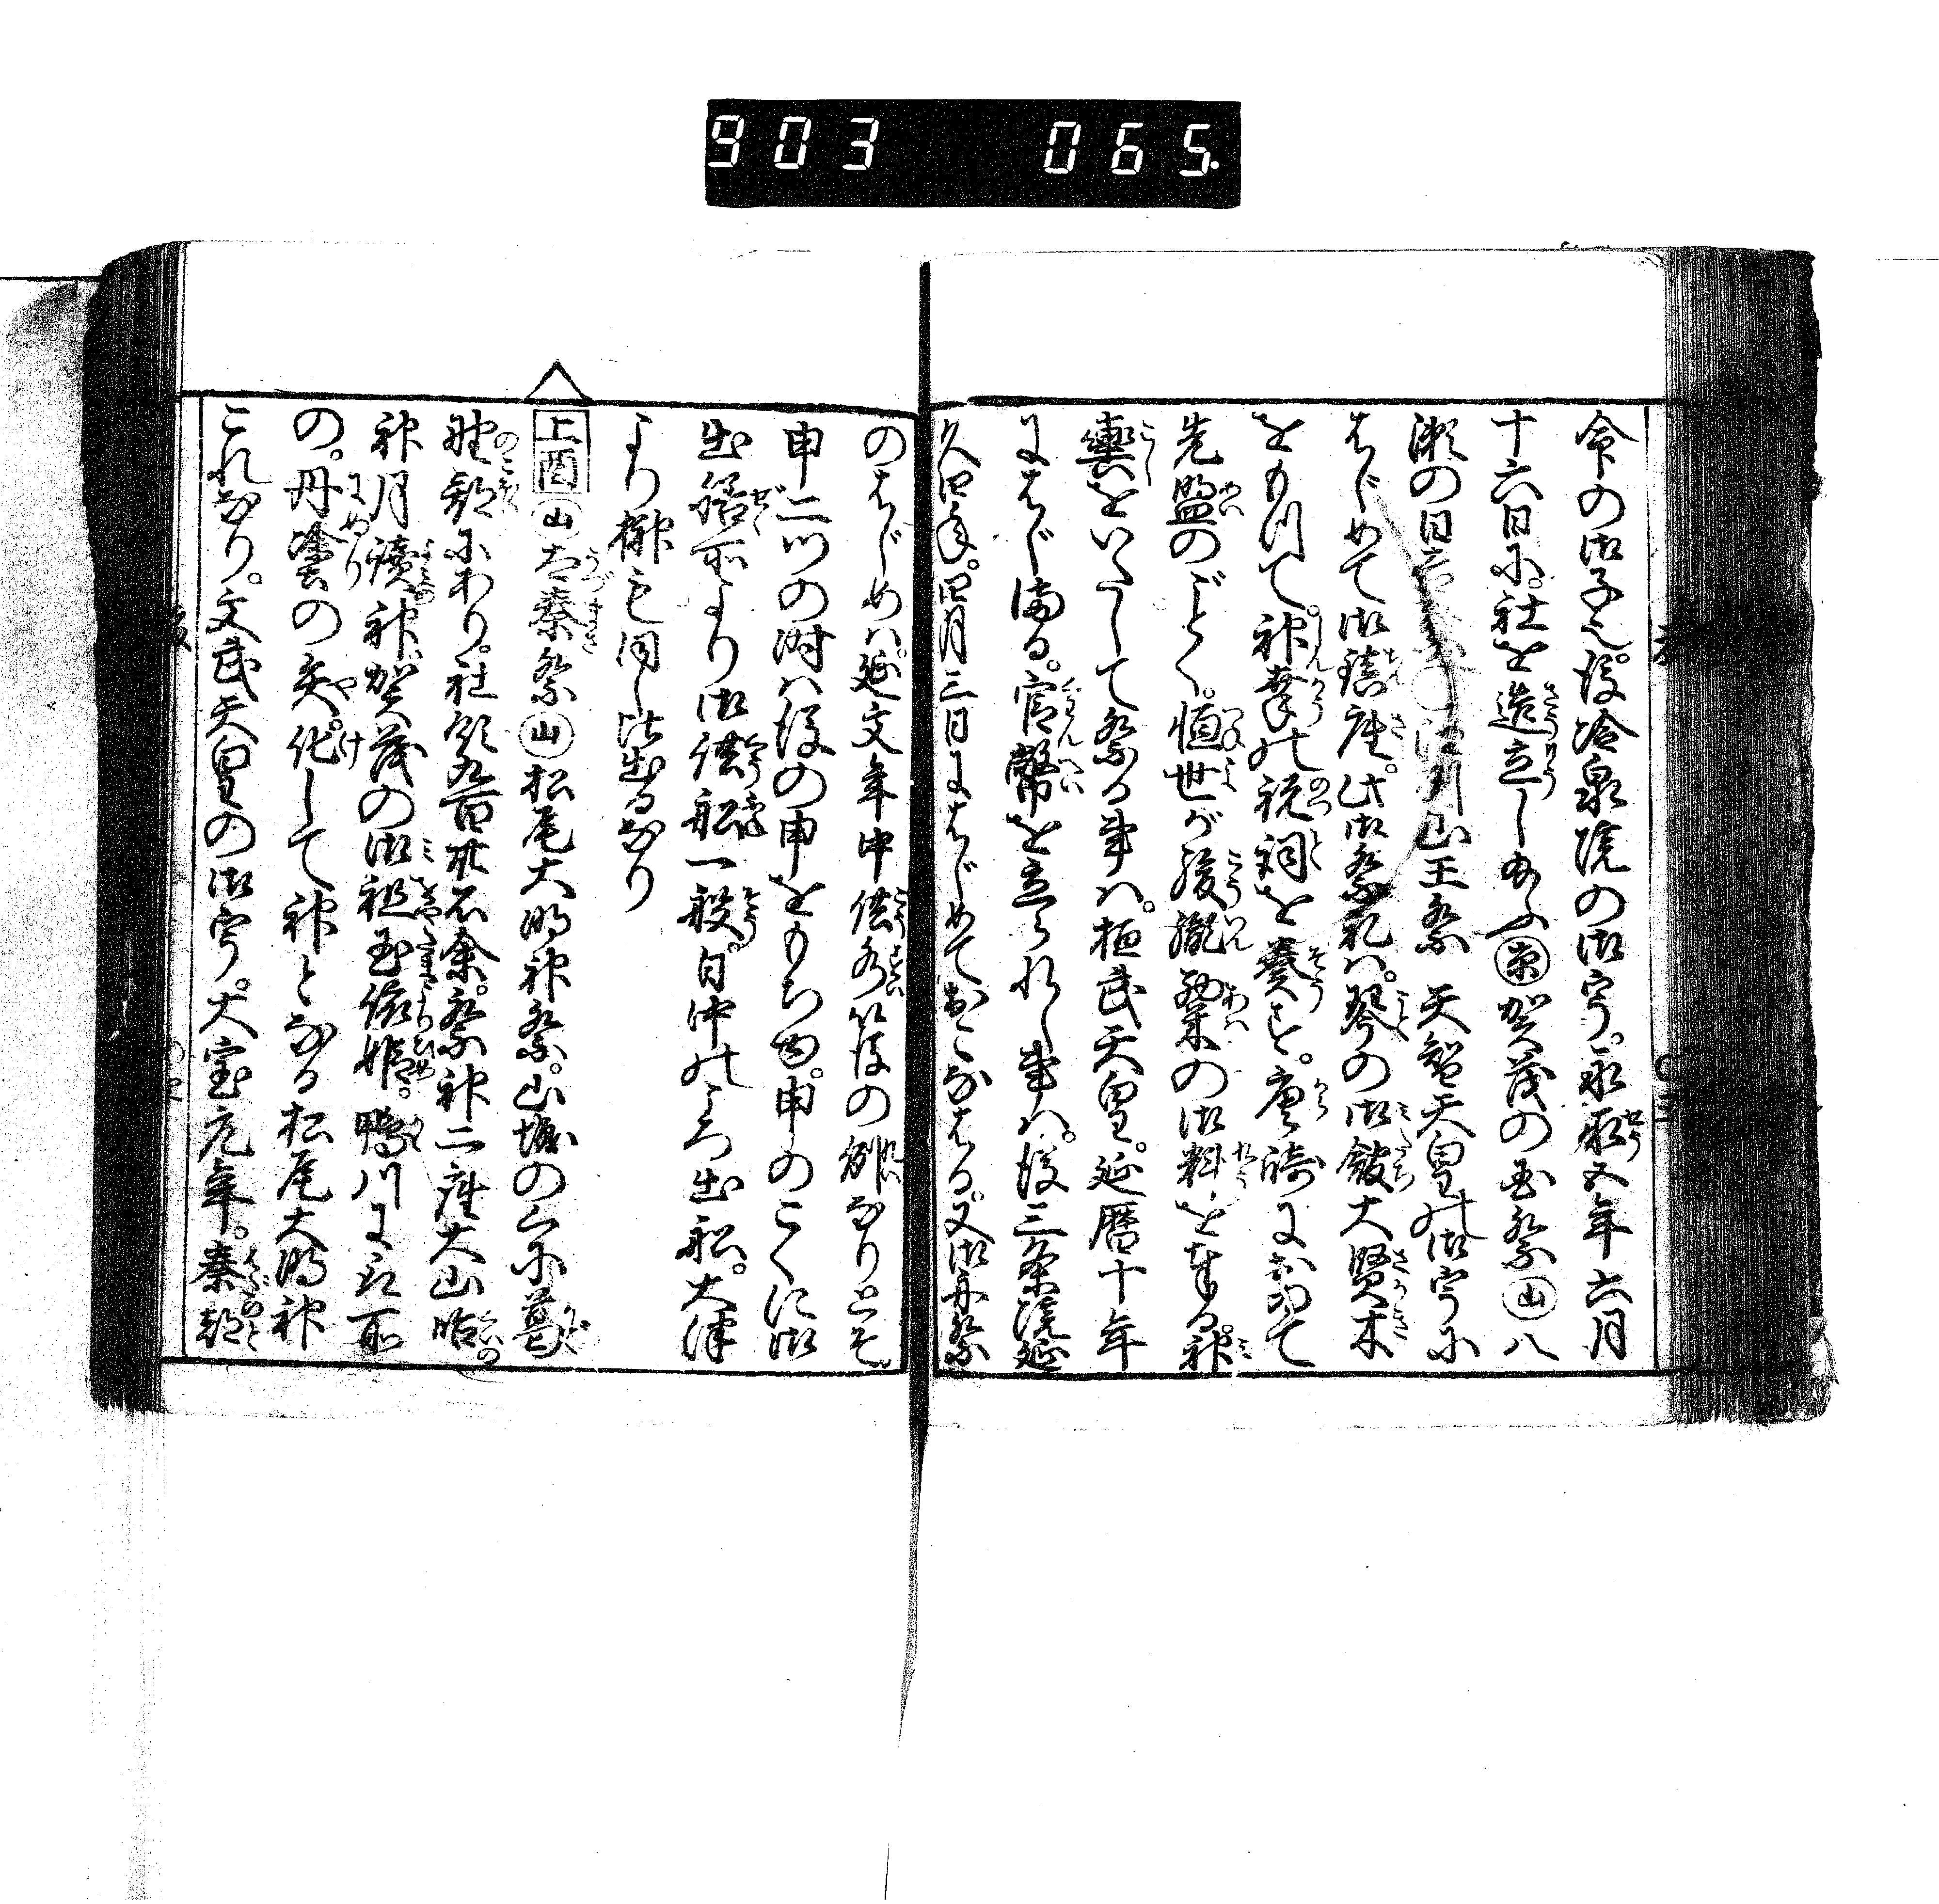 903 065.
命の御子也。後冷泉院の御宇。永承五年六月
十六日に。社を造立し給ふ㊍賀茂の国祭㊤八
瀬の日
山王祭 天智天皇の御宇に
はじめて御鎮座。此御祭礼は。琴の御館大賢木
をもつて。神幸の祝詞を奏す。唐崎におゐて
先盟のごとく。恒世が後胤粟の御料を奉る。神
輿をいたして祭る事は。桓武天皇。延暦十年
にはじまる。官幣を立られし事は。後三条院延
久四年。四月三日にはじめておこなはる。又御舟祭
のはじめは。延文年中供秀以後の例なりとぞ
申二ツの時は後の申をもち由。申のこくに御
出 所より御供船一艘。日中のころ出船。大津
より も同じ出るなり
上酉 山 太秦祭 山 松尾大明神祭。山城の国葛
野郡にあり。社領九百卅石余。祭神二座大山咋
神月読神。賀茂の御祖玉依姫。鴨川にて
の。丹塗の矢。化して神となる松尾大明神
これなり。文武天皇の御宇。大宝元年。秦都